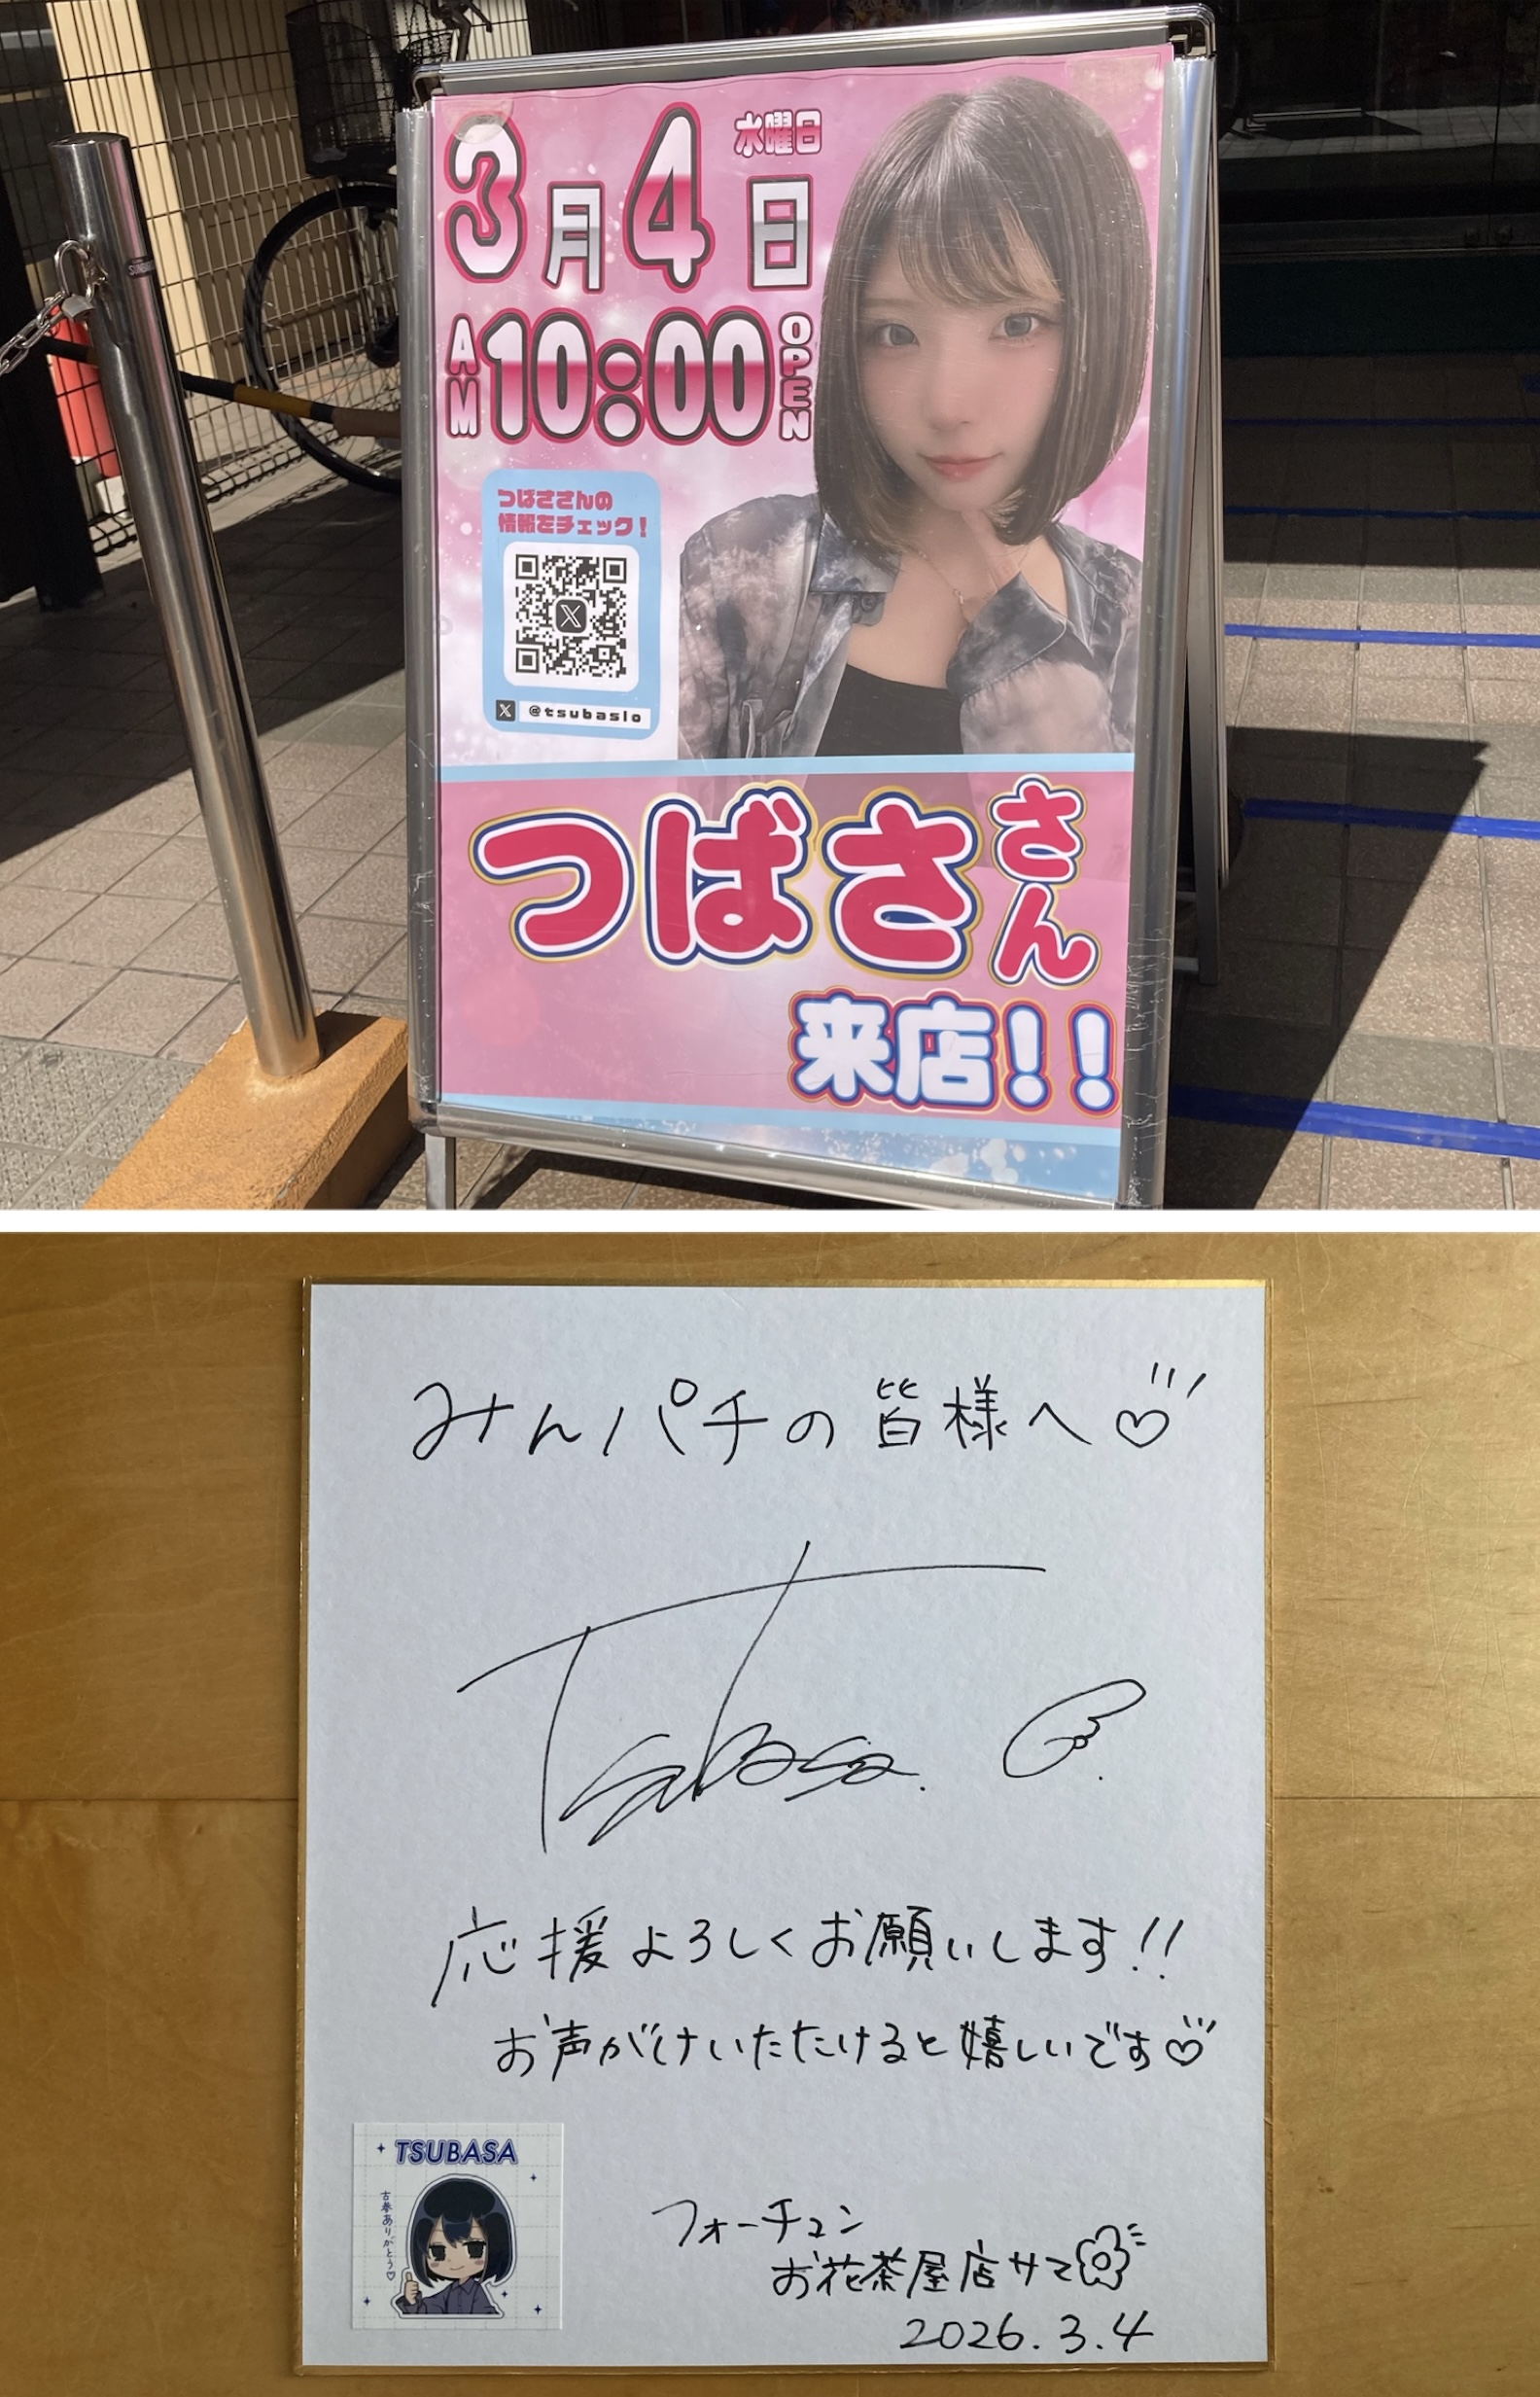 3月4日 水曜日
AM10:00 OPEN
つばささんの
情報をチェック!
X @tsubaslo
つばささん
来店!!
みんパチの皆様へ♡
Tsubasa.
応援よろしくお願いします!!
お声がけいただけると嬉しいです♡
TSUBASA
古参ありがとう♡
フォーチュン
お花茶屋店サマ
2026.3.4